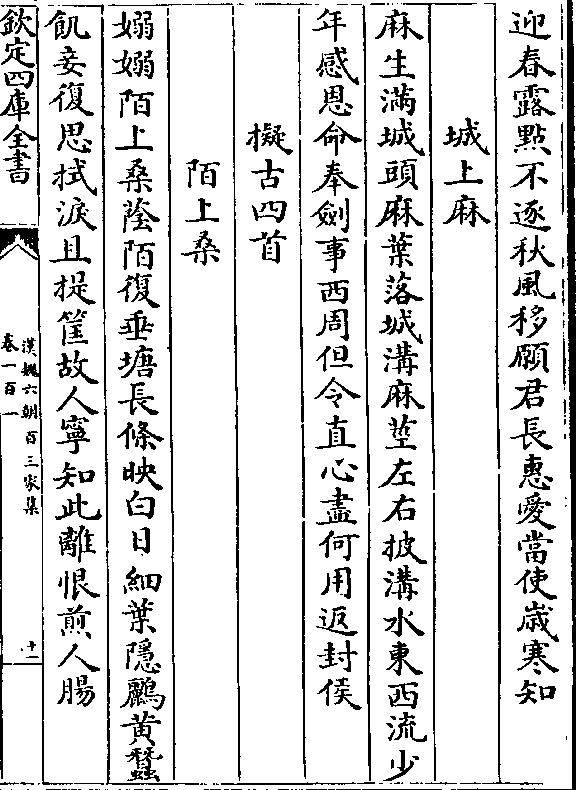 迎春露點不逐秋風移願君長惠愛當使歳寒知
城上麻
麻生滿城頭麻葉落城溝麻莖左右披溝水東西流少
年感恩命奉劍事西周但令直心盡何用返封侯
擬古四首
陌上桑
嫋嫋陌上桑蔭陌復垂塘長條映白日細葉隱鸝黄蠶
飢妾復思拭淚且提筐故人寧知此離恨煎人腸
欽定四庫全書
漢魏六朝百三家集
卷一百一
十一